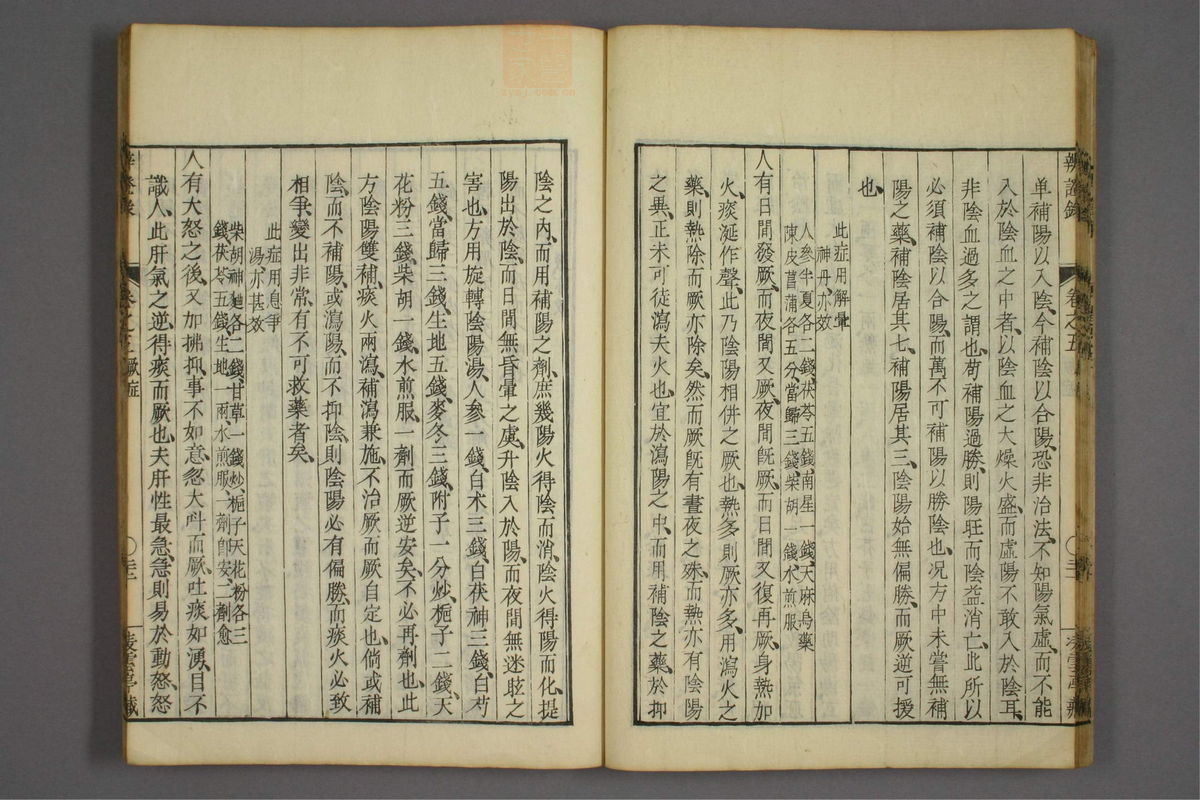 辨證錄 卷之五
單補陽以入陰、今補陰以合陽、恐非治法、不知陽氣虛、而不能
入於陰血之中者、以陰血之大燥火盛、而虛陽不敢入於陰耳、
非陰血過多之謂也、苟補陽過勝、則陽旺而陰益消亡、此所以
必須補陰以合陽、而萬不可補陽以勝陰也、况方中未嘗無補
陽之藥、補陰居其七、補陽居其三、陰陽始無偏勝、而厥逆可援
也、
此症用解暈
神丹亦效
人參半夏各二錢、茯苓五錢、南星一錢、天麻烏藥
陳皮菖蒲各五分、當歸三錢、柴胡一錢、水煎服
人有日間發厥、而夜間又厥、夜間旣厥、而日間又復再厥、身熱加
火、痰涎作聲、此乃陰陽相倂之厥也、熱多則厥亦多、用瀉火之
藥、則熱除而厥亦除矣、然而厥旣有晝夜之殊、而熱亦有陰陽
之異、正未可徒瀉夫火也、宜於瀉陽之中、而用補陰之藥、於抑
陰之內、而用補陽之劑、庶幾陽火得陰而消、陰火得陽而化、提
陽出於陰、而日間無昏暈之虞、升陰入於陽、而夜間無迷眩之
害也、方用旋轉陰陽湯、人參一錢、白术三錢、白茯神三錢、白芍
五錢、當歸三錢、生地五錢、麥冬三錢、附子一分、炒梔子二錢、天
花粉三錢、柴胡一錢、水煎服、一劑而厥逆安矣、不必再劑也、此
方陰陽雙補、痰火兩瀉、補瀉兼施、不治厥而厥自定也、倘或補
陰而不補陽、或瀉陽而不抑陰、則陰陽必有偏勝、而痰火必致
相爭、變出非常、有不可救藥者矣、
此症用息爭
湯亦甚效
柴胡神麯各二錢、甘草一錢、炒梔子天花粉各三
錢、茯苓五錢、生地一兩、水煎服、一劑卽安、二劑愈
人有大怒之後、又加拂抑、事不如意、忽大呌而厥、吐痰如湧、目不
識人、此肝氣之逆、得痰而厥也、夫肝性最急、急則易於動怒、怒
厥症